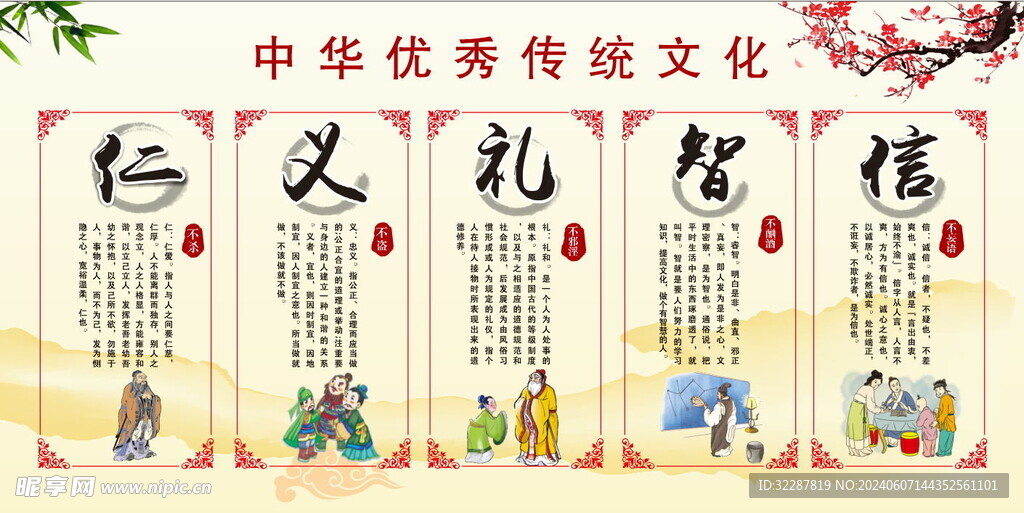 中华优秀传统文化
仁
不杀
仁：仁爱。指人与人之间要仁慈，
仁厚。人不能离群而独存，别人之
观念立，人之人格显，方能雍容和
谐，以立己立人，发挥老吾老幼吾
幼之怀抱，以及己所不欲，勿施于
人，事物为人，而不为己，发为恻
隐之心，宽裕温柔，仁也。
义
不盗
义：忠义。指公正、合理而应当做
的(公正合宜的道理或举动)注重要
与身边的人建立一种和谐的关系
。义者，宜也，则因时制宜，因地
制宜，因人制宜之意也。所当做就
做，不该做就不做。
礼
不邪淫
礼：礼和。是一个人为人处事的
根本。原指中国古代的等级制度
，以及与之相适应的道德规范和
社会规范，后发展成为由风俗习
惯形成或人为规定的礼仪，指个
人在待人接物时所表现出来的道
德修养。
智
不酗酒
智：睿智。明白是非、曲直、邪正
、真妄，即人发为是非之心，文
理密察，是为智也。通俗说，把
平时生活中的东西琢磨透了，就
叫智。智就是要人们努力的学习
知识，提高文化，做个有智慧的人。
信
不妄语
信：诚信。信者，不疑也，不差
爽也，诚实也。就是「言出由衷，
始终不渝」。信字从人言，人言不
爽，方为有信也。诚心之意也，
以诚居心，必然诚实。处世端正，
不诳妄，不欺诈者，是为信也。
昵享网 www.nipic.cn
ID:32287819 NO:20240607144352561101